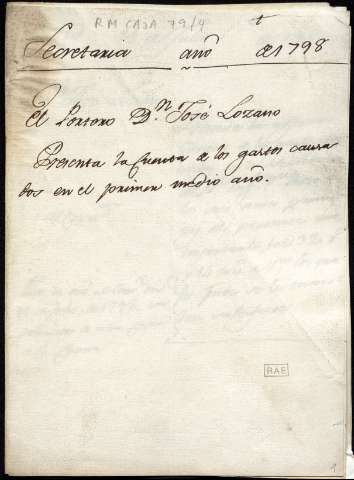 RM CAJA 79/4
Secretaria año de 1798
El Portero Dn. José Lozano
Presenta la Cuenta de los gastos causa
dos en el primer medio año.
RAE
1